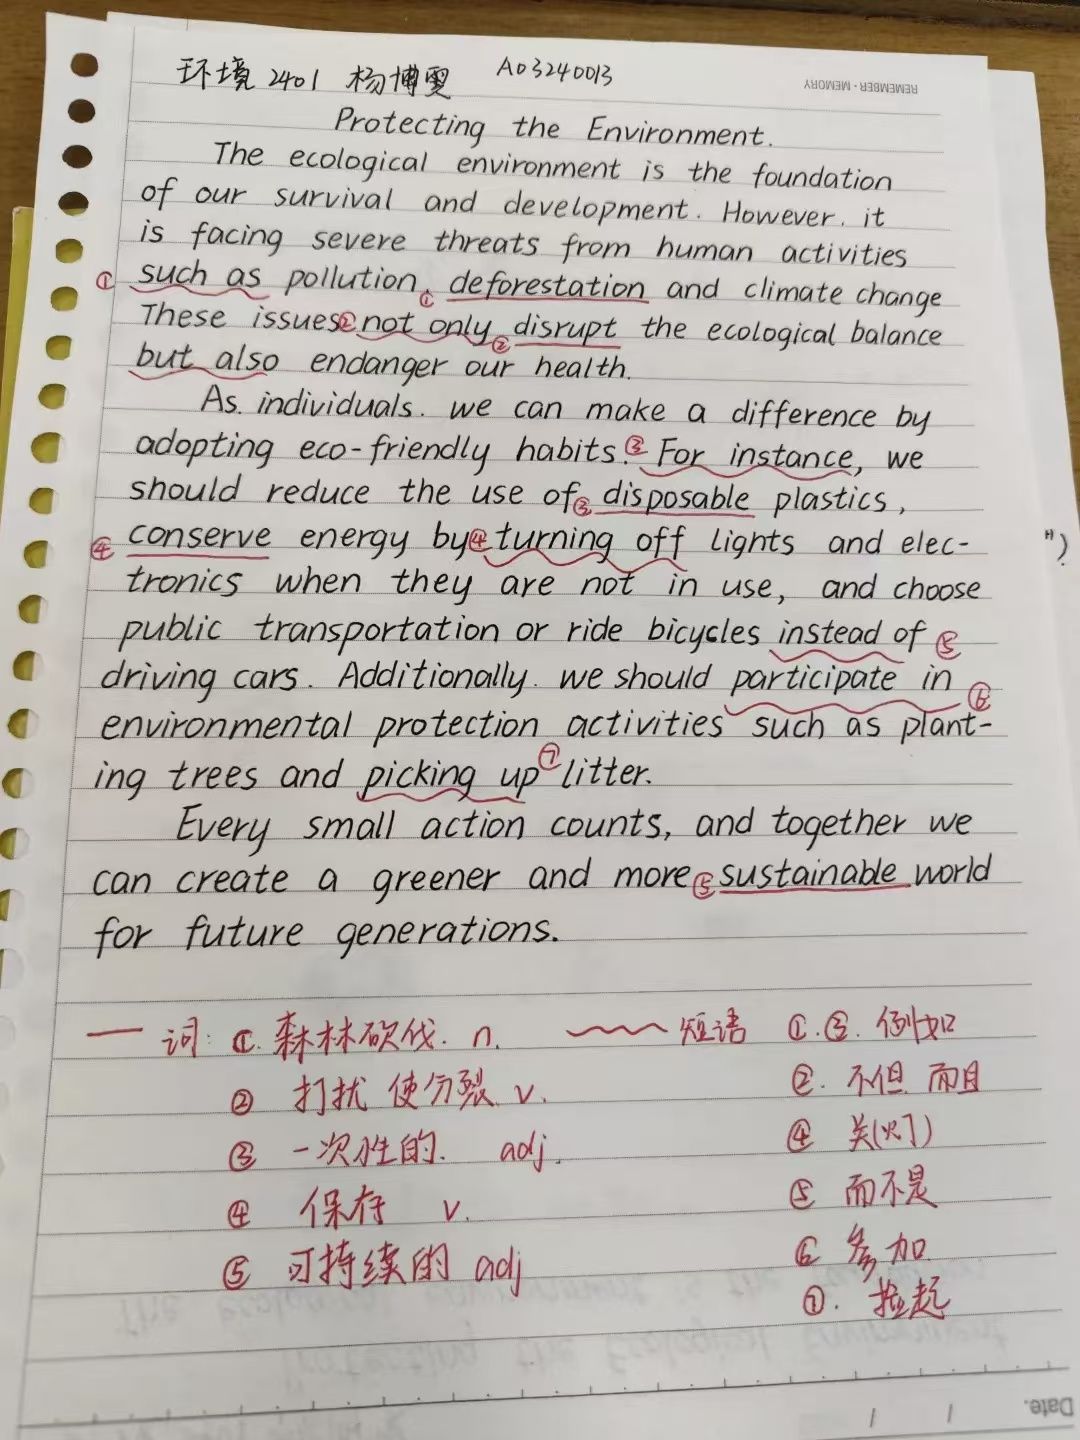 环境 2401 杨博雯 A03240013
REMEMBER · MEMORY
Protecting the Environment.
The ecological environment is the foundation
of our survival and development. However. it
is facing severe threats from human activities
① such as pollution, ① deforestation and climate change
These issues ② not only ② disrupt the ecological balance
but also endanger our health.
As. individuals. we can make a difference by
adopting eco-friendly habits. ③ For instance, we
should reduce the use of ③ disposable plastics,
④ conserve energy by ④ turning off lights and elec-
tronics when they are not in use, and choose
public transportation or ride bicycles instead of ⑤
driving cars. Additionally. we should participate in ⑥
environmental protection activities such as plant-
ing trees and picking up ⑦ litter.
Every small action counts, and together we
can create a greener and more ⑤ sustainable world
for future generations.
— 词: ①. 森林砍伐. n. 短语 ①.③. 例如
② 打扰 使分裂 v. ②. 不但 而且
③ 一次性的. adj. ④ 关(灯)
④ 保存 v. ⑤ 而不是
⑤ 可持续的 adj ⑥ 参加
⑦. 捡起
Date.